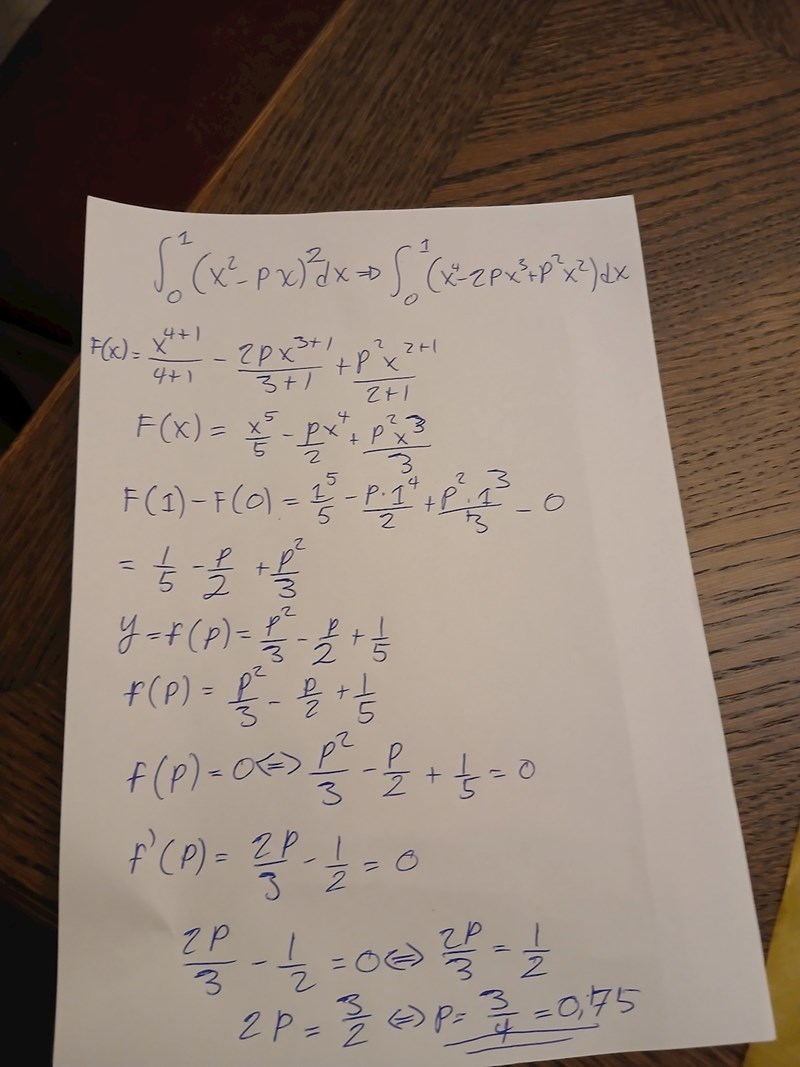 ∫₀¹ (x² - px)² dx ⇒ ∫₀¹ (x⁴ - 2px³ + p²x²) dx
F(x) = x⁴⁺¹/4+1 - 2px³⁺¹/3+1 + p²x²⁺¹/2+1
F(x) = x⁵/5 - px⁴/2 + p²x³/3
F(1) - F(0) = 1⁵/5 - p·1⁴/2 + p²·1³/3 - 0
= 1/5 - p/2 + p²/3
y = f(p) = p²/3 - p/2 + 1/5
f(p) = p²/3 - p/2 + 1/5
f(p) = 0 ⇔ p²/3 - p/2 + 1/5 = 0
f'(p) = 2p/3 - 1/2 = 0
2p/3 - 1/2 = 0 ⇔ 2p/3 = 1/2
2p = 3/2 ⇔ p = 3/4 = 0,75